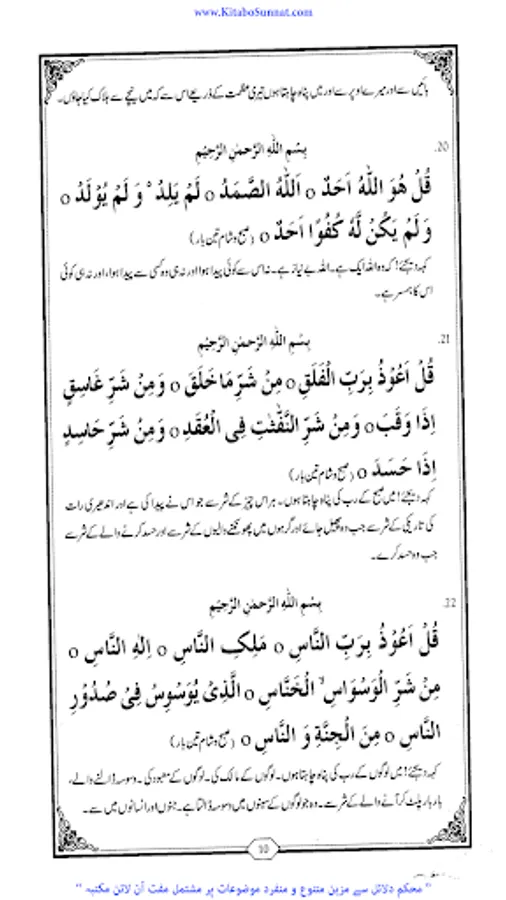 www.KitaboSunnat.com
بائیں سے اور میرے اوپر سے اور میں پناہ چاہتا ہوں تیری عظمت کے ذریعے اس سے کہ میں نیچے سے ہلاک کیا جاؤں۔
بِسْمِ اللّٰهِ الرَّحْمٰنِ الرَّحِيْمِ
20.
قُلْ هُوَ اللّٰهُ اَحَدٌ ○ اَللّٰهُ الصَّمَدُ ○ لَمْ يَلِدْ ۙ وَ لَمْ يُوْلَدْ ○
وَ لَمْ يَكُنْ لَّهٗ كُفُوًا اَحَدٌ ○ (صبح و شام تین بار)
کہہ دیجئے! کہ وہ اللہ ایک ہے۔ اللہ بے نیاز ہے۔ نہ اس سے کوئی پیدا ہوا اور نہ ہی وہ کسی سے پیدا ہوا، اور نہ ہی کوئی
اس کا ہمسر ہے۔
بِسْمِ اللّٰهِ الرَّحْمٰنِ الرَّحِيْمِ
21.
قُلْ اَعُوْذُ بِرَبِّ الْفَلَقِ ○ مِنْ شَرِّ مَا خَلَقَ ○ وَمِنْ شَرِّ غَاسِقٍ
اِذَا وَقَبَ ○ وَمِنْ شَرِّ النَّفّٰثٰتِ فِى الْعُقَدِ ○ وَمِنْ شَرِّ حَاسِدٍ
اِذَا حَسَدَ ○ (صبح و شام تین بار)
کہہ دیجئے! میں صبح کے رب کی پناہ چاہتا ہوں۔ ہر اس چیز کے شر سے جو اس نے پیدا کی ہے اور اندھیری رات
کی تاریکی کے شر سے جب وہ پھیل جائے اور گرہوں میں پھونکنے والیوں کے شر سے اور حسد کرنے والے کے شر سے
جب وہ حسد کرے۔
بِسْمِ اللّٰهِ الرَّحْمٰنِ الرَّحِيْمِ
22.
قُلْ اَعُوْذُ بِرَبِّ النَّاسِ ○ مَلِكِ النَّاسِ ○ اِلٰهِ النَّاسِ ○
مِنْ شَرِّ الْوَسْوَاسِ ۙ الْخَنَّاسِ ○ الَّذِىْ يُوَسْوِسُ فِىْ صُدُوْرِ
النَّاسِ ○ مِنَ الْجِنَّةِ وَ النَّاسِ ○ (صبح و شام تین بار)
کہہ دیجئے! میں لوگوں کے رب کی پناہ چاہتا ہوں۔ لوگوں کے مالک کی۔ لوگوں کے معبود کی۔ وسوسہ ڈالنے والے،
بار بار پلٹ کر آنے والے کے شر سے۔ وہ جو لوگوں کے سینوں میں وسوسہ ڈالتا ہے۔ جنوں اور انسانوں میں سے۔
10
" محکم دلائل سے مزین متنوع و منفرد موضوعات پر مشتمل مفت آن لائن مکتبہ "